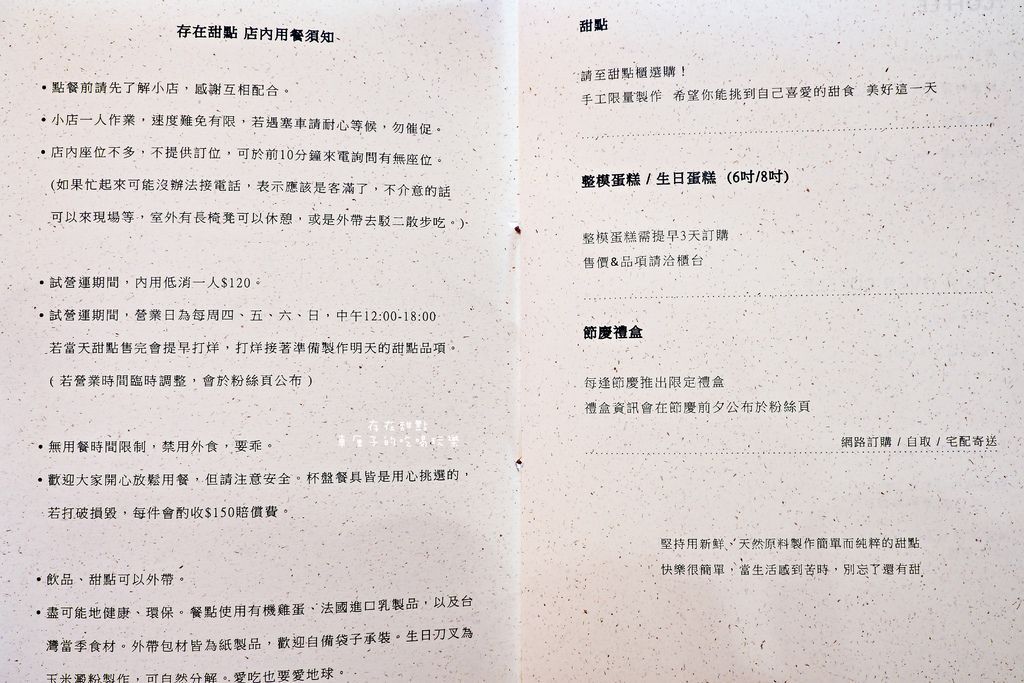 存在甜點 店內用餐須知
•點餐前請先了解小店，感謝互相配合。
•小店一人作業，速度難免有限，若遇塞車請耐心等候，勿催促。
•店內座位不多，不提供訂位，可於前10分鐘來電詢問有無座位。
(如果忙起來可能沒辦法接電話，表示應該是客滿了，不介意的話
可以來現場等，室外有長椅凳可以休憩，或是外帶去駁二散步吃。)
•試營運期間，內用低消一人$120。
•試營運期間，營業日為每周四、五、六、日，中午12:00-18:00
若當天甜點售完會提早打烊，打烊接著準備製作明天的甜點品項。
( 若營業時間臨時調整，會於粉絲頁公布 )
存在甜點
的吃喝玩樂
•無用餐時間限制，禁用外食，要乖。
•歡迎大家開心放鬆用餐，但請注意安全。杯盤餐具皆是用心挑選的，
若打破損毀，每件會酌收$150賠償費。
•飲品、甜點可以外帶。
•盡可能地健康、環保。餐點使用有機雞蛋、法國進口乳製品，以及台
灣當季食材。外帶包材皆為紙製品，歡迎自備袋子承裝。生日刀叉為
玉米澱粉製作，可自然分解。愛吃也要愛地球。
甜點
請至甜點櫃選購！
手工限量製作 希望你能挑到自己喜愛的甜食 美好這一天
整模蛋糕 / 生日蛋糕 (6吋/8吋)
整模蛋糕需提早3天訂購
售價&品項請洽櫃台
節慶禮盒
每逢節慶推出限定禮盒
禮盒資訊會在節慶前夕公布於粉絲頁
網路訂購 / 自取 / 宅配寄送
堅持用新鮮、天然原料製作簡單而純粹的甜點
快樂很簡單，當生活感到苦時，別忘了還有甜